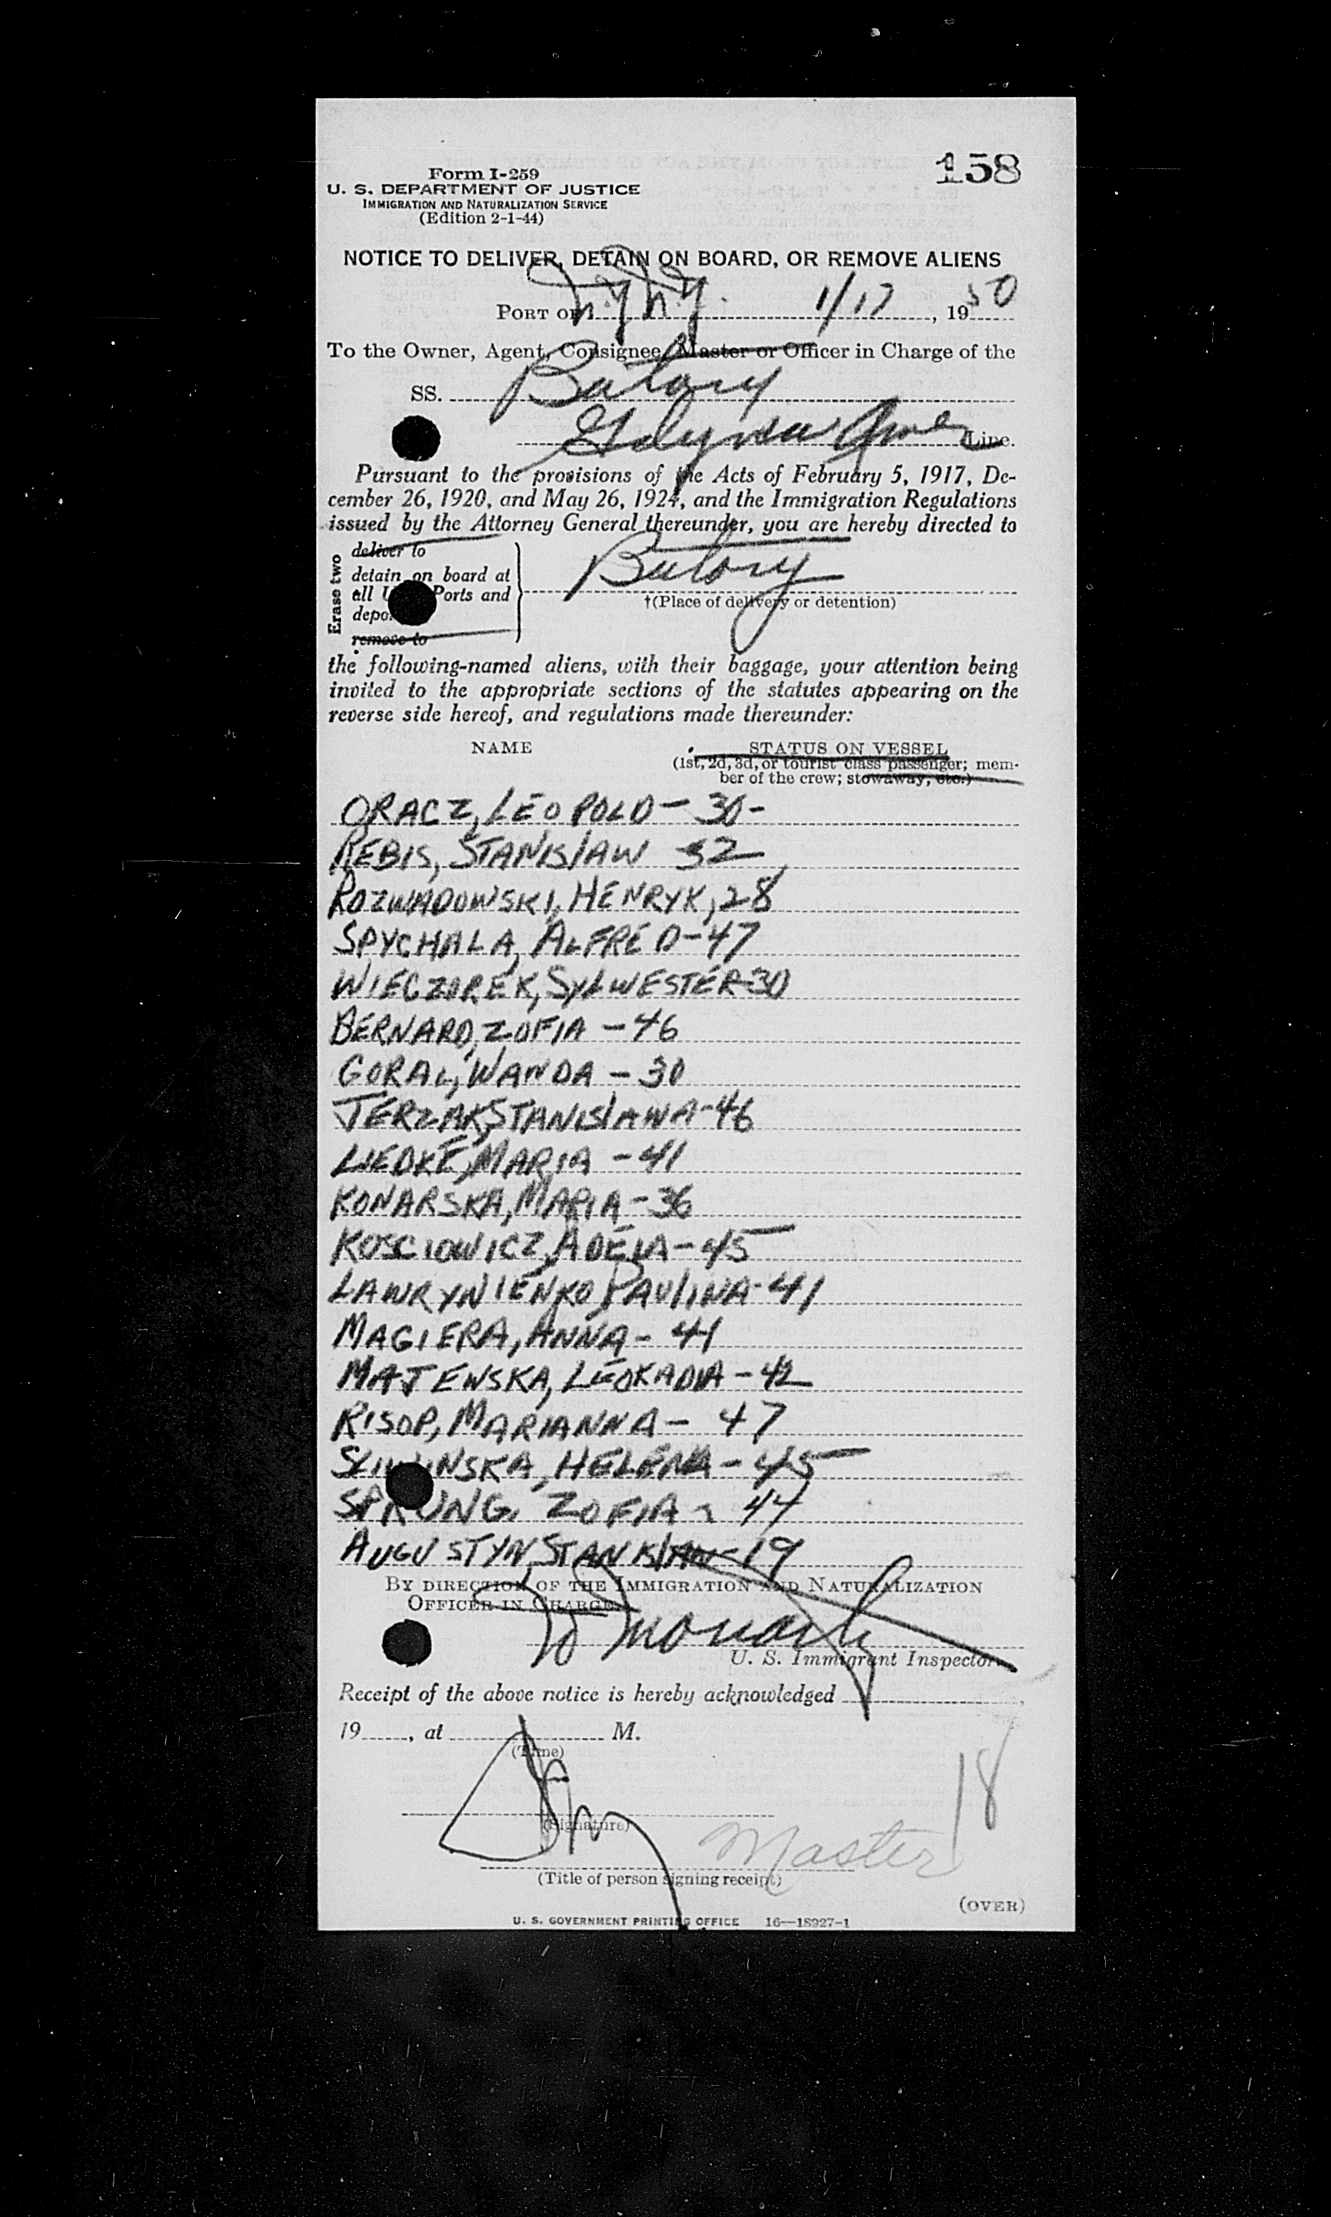 158
Form I-259
U. S. DEPARTMENT OF JUSTICE
IMMIGRATION AND NATURALIZATION SERVICE
(Edition 2-1-44)
NOTICE TO DELIVER, DETAIN ON BOARD, OR REMOVE ALIENS
PORT OF N.Y. N.Y. 1/17, 1950
To the Owner, Agent, Consignee, Master or Officer in Charge of the
SS. Batory
Gdynia Amer Line.
Pursuant to the provisions of the Acts of February 5, 1917, De-
cember 26, 1920, and May 26, 1924, and the Immigration Regulations
issued by the Attorney General thereunder, you are hereby directed to
Erase two
deliver to
detain on board at
all Ports and
Batory
†(Place of delivery or detention)
remove to
the following-named aliens, with their baggage, your attention being
invited to the appropriate sections of the statutes appearing on the
reverse side hereof, and regulations made thereunder:
NAME STATUS ON VESSEL
(1st, 2d, 3d, or tourist class passenger; mem-
ber of the crew; stowaway, etc.)
ORACZ, LEOPOLD - 30-
REBIS, STANISLAW 32
ROZWADOWSKI, HENRYK, 28
SPYCHALA, ALFRED - 47
WIECZOREK, SYLWESTER-30
BERNARD, ZOFIA - 46
GORAL, WANDA - 30
JERZAK, STANISLAWA - 46
LIEDKE, MARIA - 41
KONARSKA, MARIA - 36
KOSCIOWICZ, ADELA - 45
LAWRYNIENKO PAULINA - 41
MAGIERA, ANNA - 41
MAJEWSKA, LEOKADIA - 42
RISOP, MARIANNA - 47
HELENA - 45
SPRUNG, ZOFIA - 44
AUGUSTYN, STANISLAW - 19
BY DIRECTION OF THE IMMIGRATION AND NATURALIZATION
OFFICER IN CHARGE
U. S. Immigrant Inspector.
Receipt of the above notice is hereby acknowledged
19, at M.
(Time)
18
(Signature)
Master
(Title of person signing receipt)
(OVER)
U. S. GOVERNMENT PRINTING OFFICE 16—18927-1